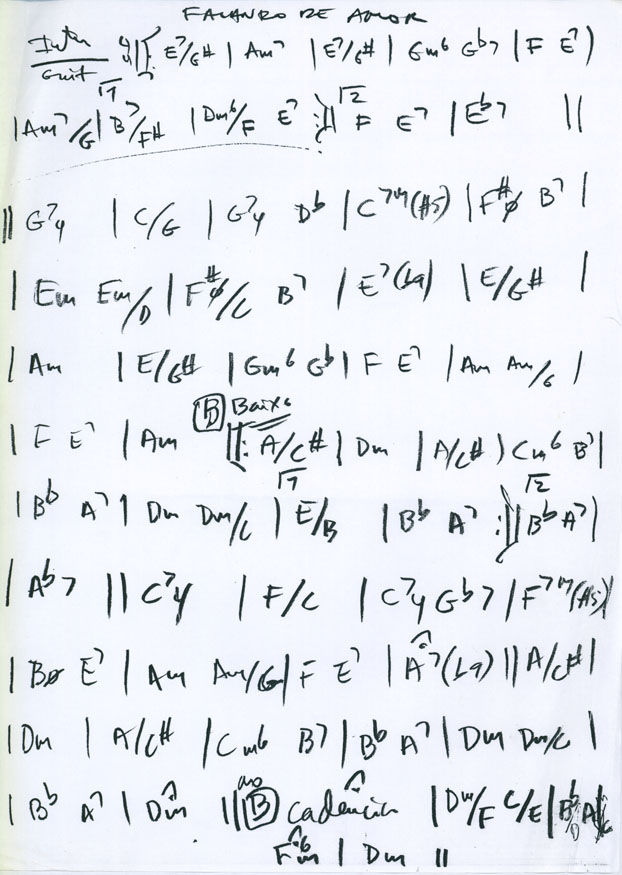 FALANDO DE AMOR
Intr 4/4 ||: E7/G# | Am7 | E7/G# | Gm6 Gb7 | F E7 |
Guit
|Am7/G| 1 B7/F# | Dm6/F E7 :|| 2 F E7 | Eb7 ||
|| G74 | C/G | G74 Db | C7M(#5) | F#ø B7 |
| Em Em/D | F#ø/C B7 | E7(b9) | E/G# |
| Am | E/G# | Gm6 Gb | F E7 | Am Am/G |
B Baixo
| F E7 | Am ||: A/C# | Dm | A/C# | Cm6 B7 |
| Bb A7 | Dm Dm/C | 1 E/B | Bb A7 :|| 2 Bb A7 |
| Ab7 || C74 | F/C | C74 Gb7 | F7M(#5) |
| Bø E7 | Am Am/G | F E7 | A7(b9) || A/C# |
| Dm | A/C# | Cm6 B7 | Bb A7 | Dm Dm/C |
| Bb A7 | Dm || ao B cadência | Dm/F C/E | Bb/D A/G
Fm6 | Dm ||